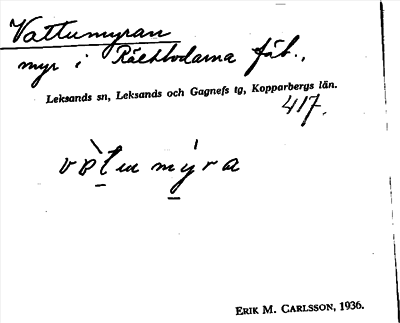 Vattumyran
myr i fäb.,
Leksands sn, Leksands och Gagnefs tg, Kopparbergs län.
417.
myra
ERIK M. CARLSSON, 1936.